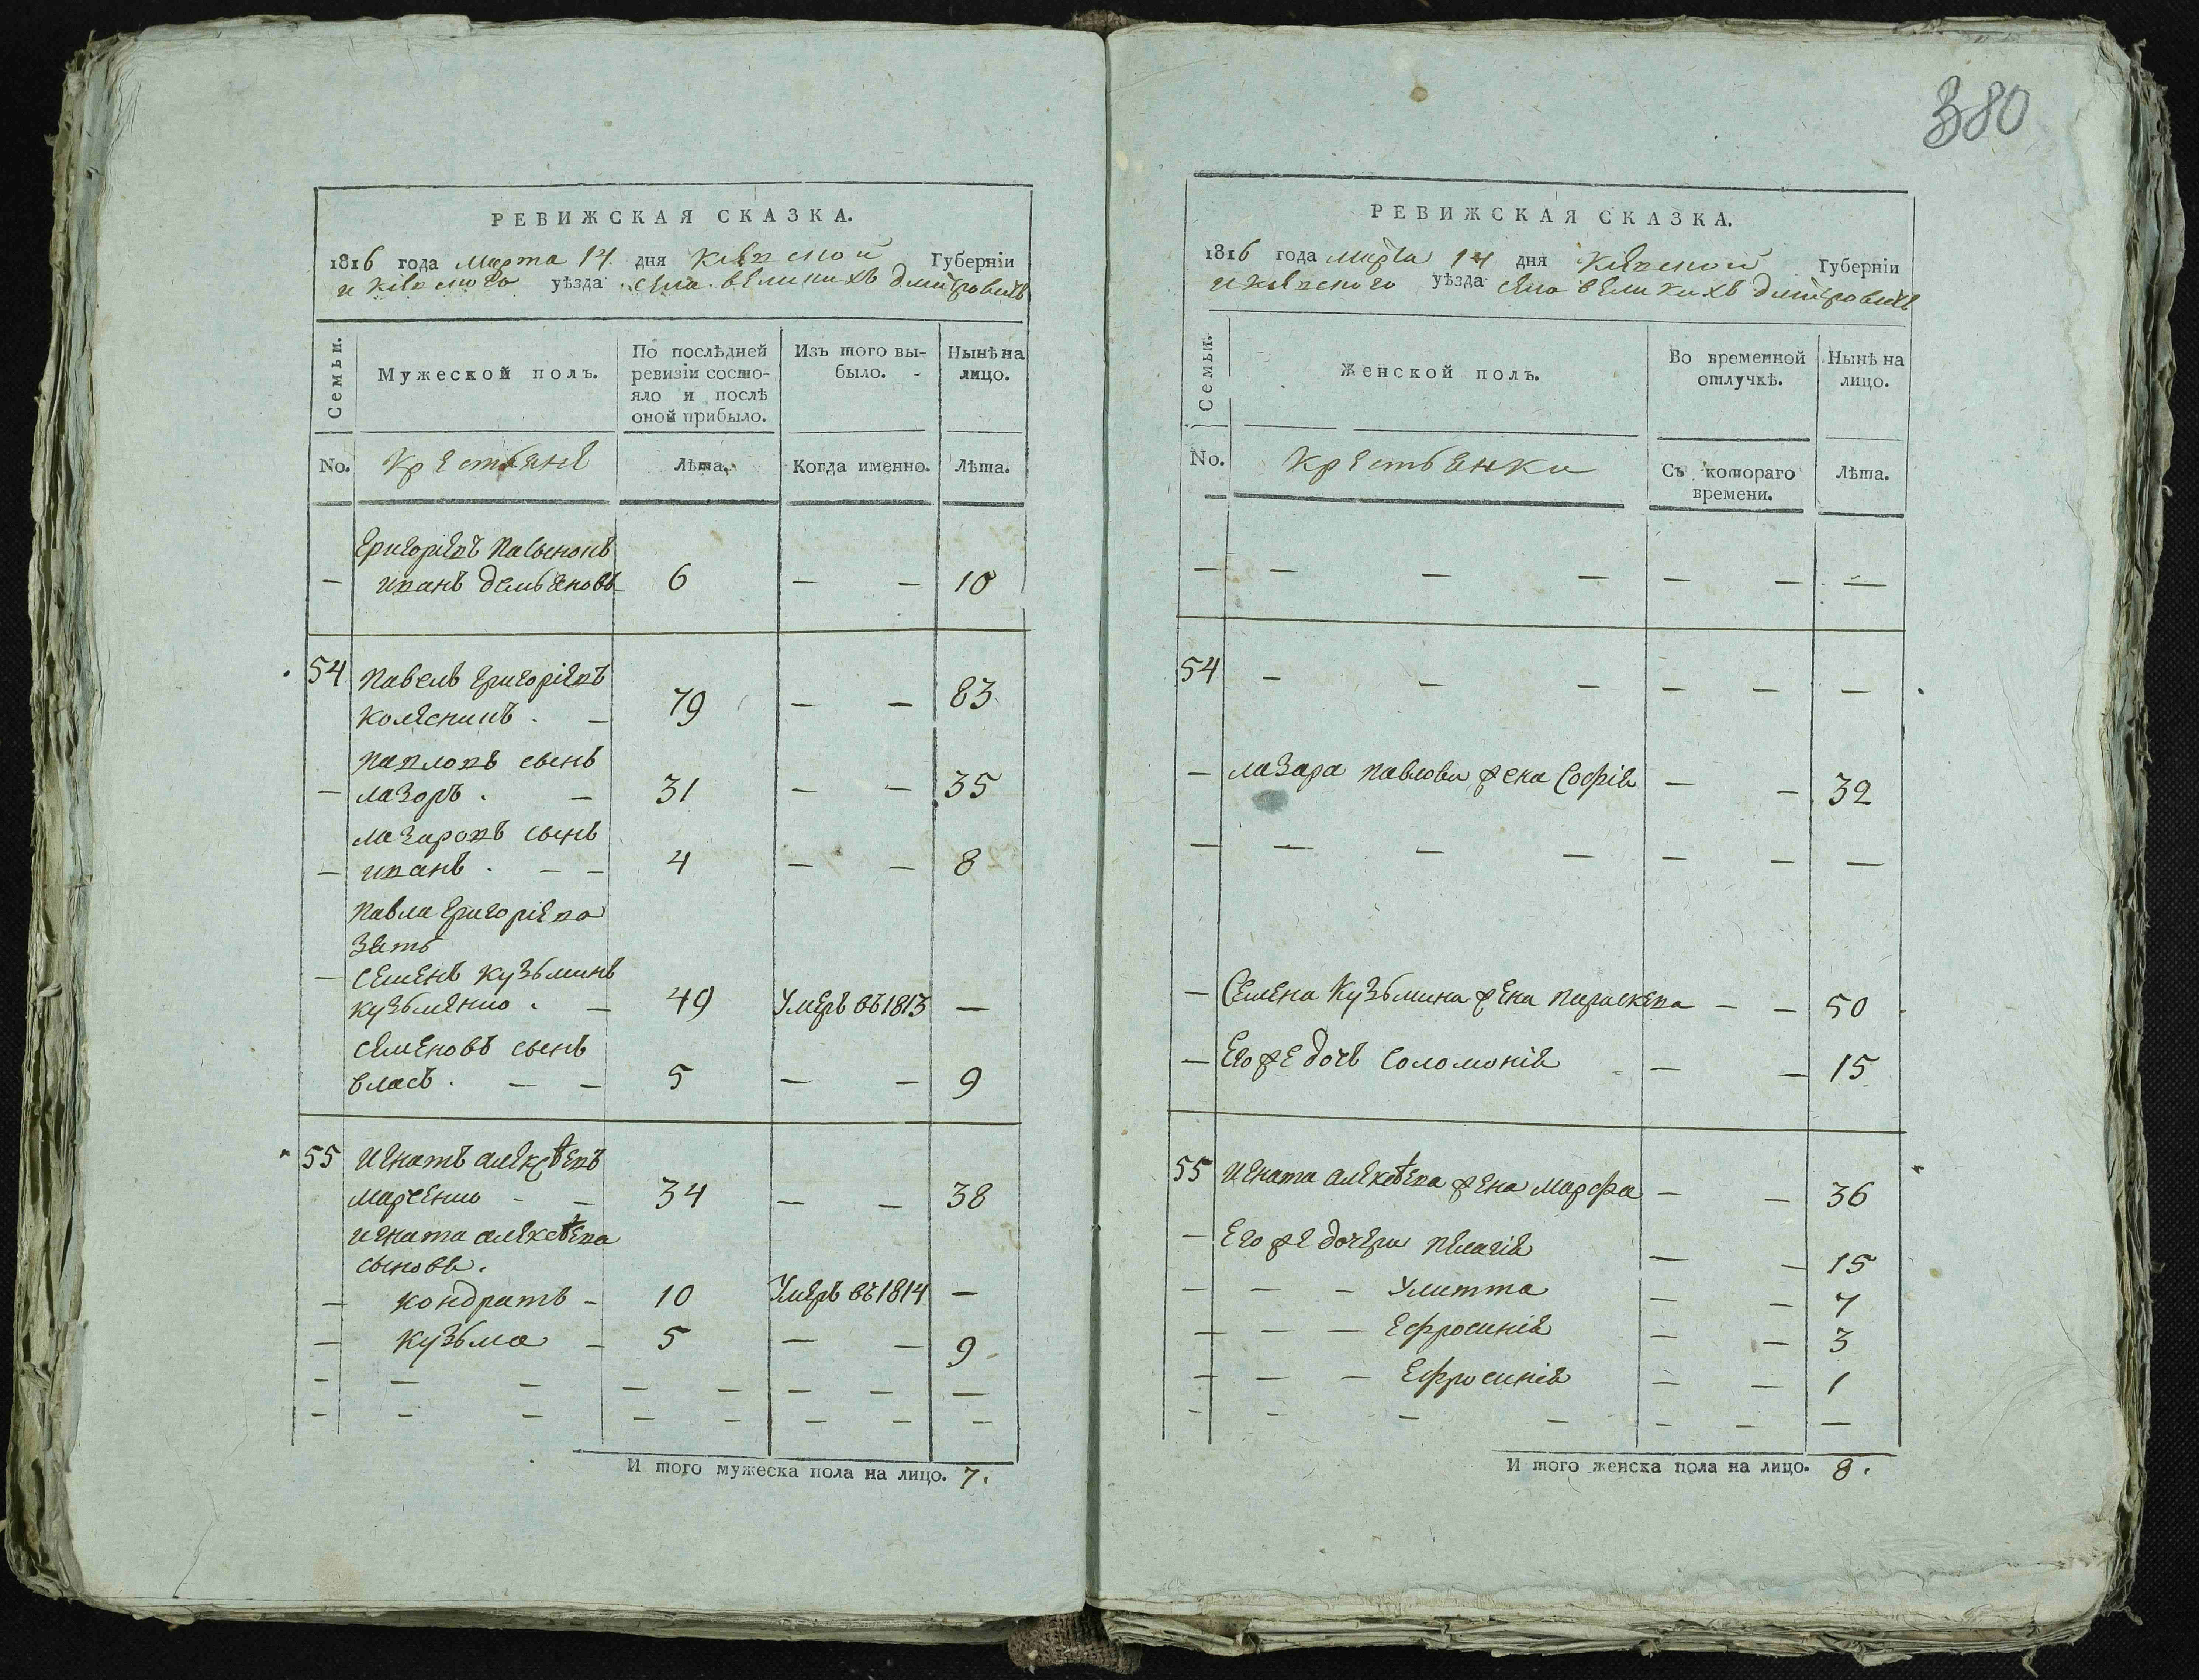 380
РЕВИЖСКАЯ СКАЗКА.
1816 года марта 14 дня Киевской Губерніи
и Киевского уѣзда села великихъ дмитровичъ
Семьи.
Мужеской полъ.
По послѣдней
ревизіи состо-
яло и послѣ
оной прибыло.
Изъ того вы-
было.
Нынѣ на
лицо.
No. Крестьяне Лѣта. Когда именно. Лѣта.
Григоріевъ
— иванъ демьяновъ 6 — — 10
54 Павелъ Григоріевъ
Колесникъ . — 79 — — 83
Павловъ сынъ
— лазоръ . — 31 — — 35
лазаровъ сынъ
— иванъ . — — 4 — — 8
Павла Григоріева
зять
— Семенъ Кузьминъ
кузьменко . — 49 Умеръ въ 1813 —
семеновъ сынъ
власъ . — — 5 — — 9
55 Игнатъ алексѣевъ
марченко — — 34 — — 38
игната алексѣева
сыновья.
— кондратъ — 10 Умеръ въ 1814 —
— кузьма — 5 — — 9
— — — — — — — —
— — — — — — — —
И того мужеска пола на лицо. 7.
РЕВИЖСКАЯ СКАЗКА.
1816 года марта 14 дня Киевской Губерніи
и Киевского уѣзда села великихъ дмитровичъ
Семьи.
Женской полъ.
Во временной
отлучкѣ.
Нынѣ на
лицо.
No. Крестьянки Съ котораго
времени. Лѣта.
— — — — — — —
54 — — — — — —
— лазара павлова жена Софія — — 32
— — — — — — —
— Семена Кузьмина жена параскева — — 50
— Его же дочь Соломонія — — 15
55 Игната алексѣева жена марфа — — 36
— Его же дочери пелагія — — 15
— — — Улитта — — 7
— — — Ефросинія — — 3
— — — Ефросинія — — 1
— — — — — — —
И того женска пола на лицо. 8.